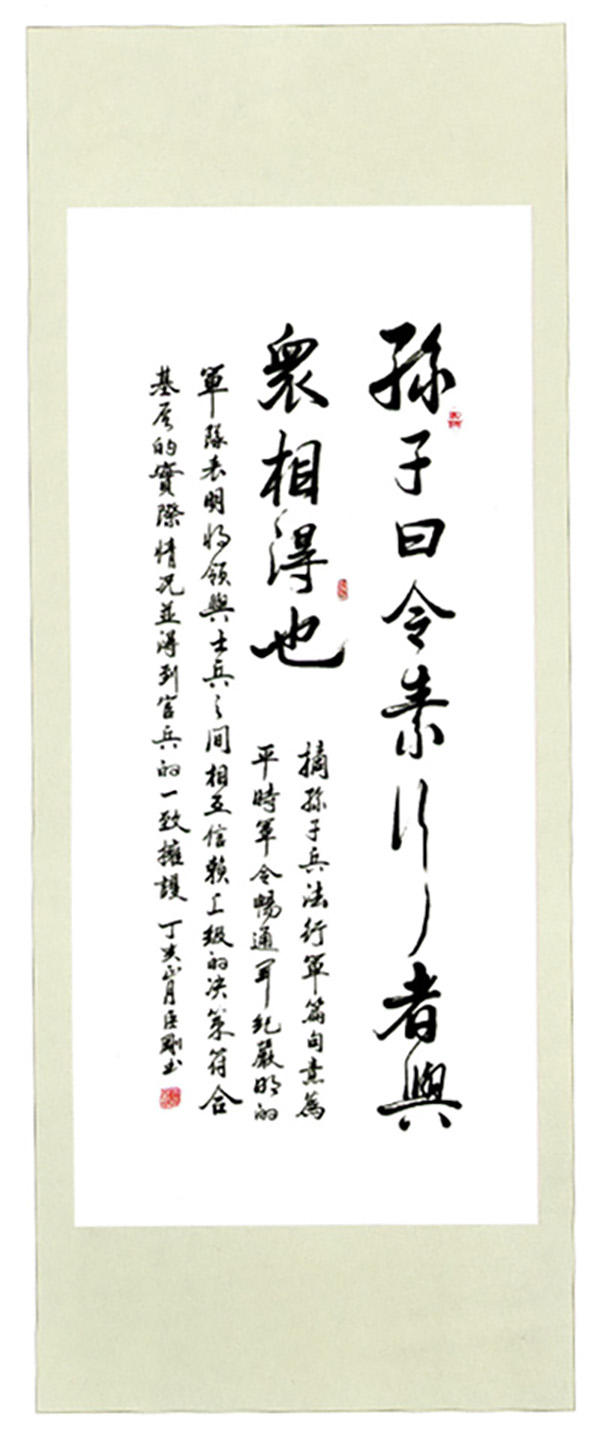 孫子曰令素行者與
衆相得也
摘孫子兵法行軍篇句意為
平時軍令暢通军紀嚴明的
軍隊表明將領與士兵之间相互信賴上级的决策符合
基层的實際情况並得到官兵的一致擁護 丁亥正月剛书